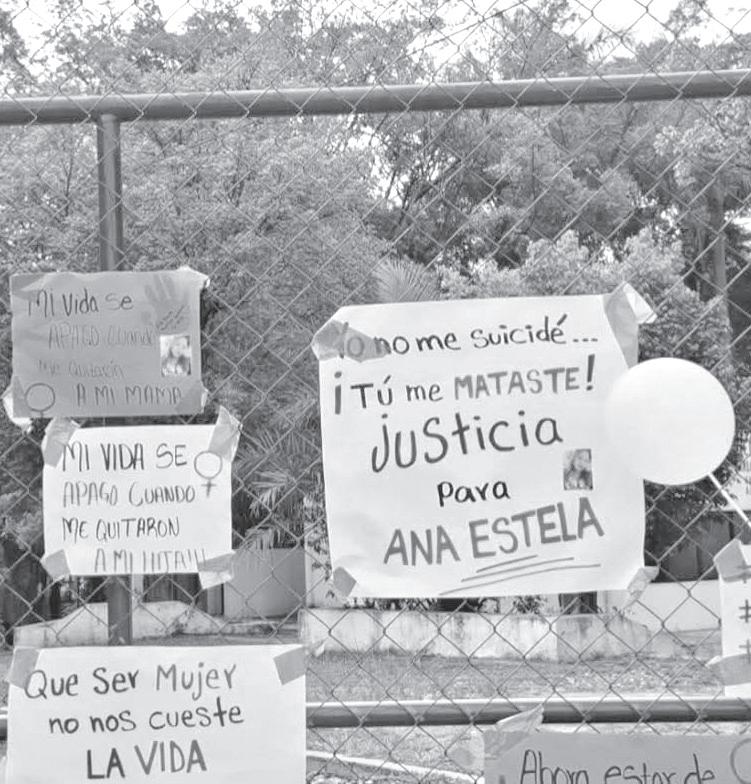 Mi Vida Se
APAGO Cuando
Me Quitarón
A MI MAMA
MI VIDA SE
APAGO CUANDO
ME QUITARON
A MI HIJA!!!
Yo no me suicidé...
¡Tú me MATASTE!
JUSticia
Para
ANA ESTELA
Que Ser Mujer
no nos cueste
LA VIDA
Ahora estar de